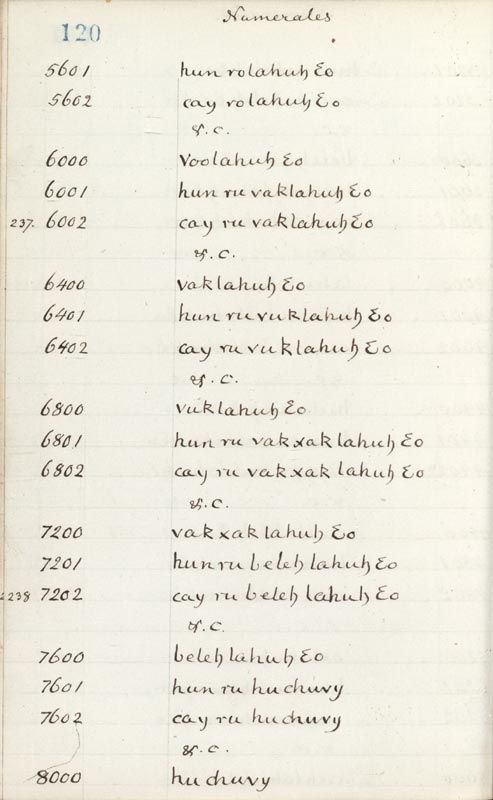 Numerales
120
5601 hun rolahuꜧ Ɛo
5602 cay rolahuꜧ Ɛo
&.c.
6000 voolahuꜧ Ɛo
6001 hun ru vaklahuꜧ Ɛo
237. 6002 cay ru vaklahuꜧ Ɛo
&.c.
6400 vaklahuꜧ Ɛo
6401 hun ru vuklahuꜧ Ɛo
6402 cay ru vuklahuꜧ Ɛo
&.c.
6800 vuklahuꜧ Ɛo
6801 hun ru vakxak lahuꜧ Ɛo
6802 cay ru vakxak lahuꜧ Ɛo
&.c.
7200 vakxak lahuꜧ Ɛo
7201 hun ru beleꜧ lahuꜧ Ɛo
238 7202 cay ru beleꜧ lahuꜧ Ɛo
&.c.
7600 beleꜧ lahuꜧ Ɛo
7601 hun ru huchuvy
7602 cay ru huchuvy
&.c.
8000 huchuvy